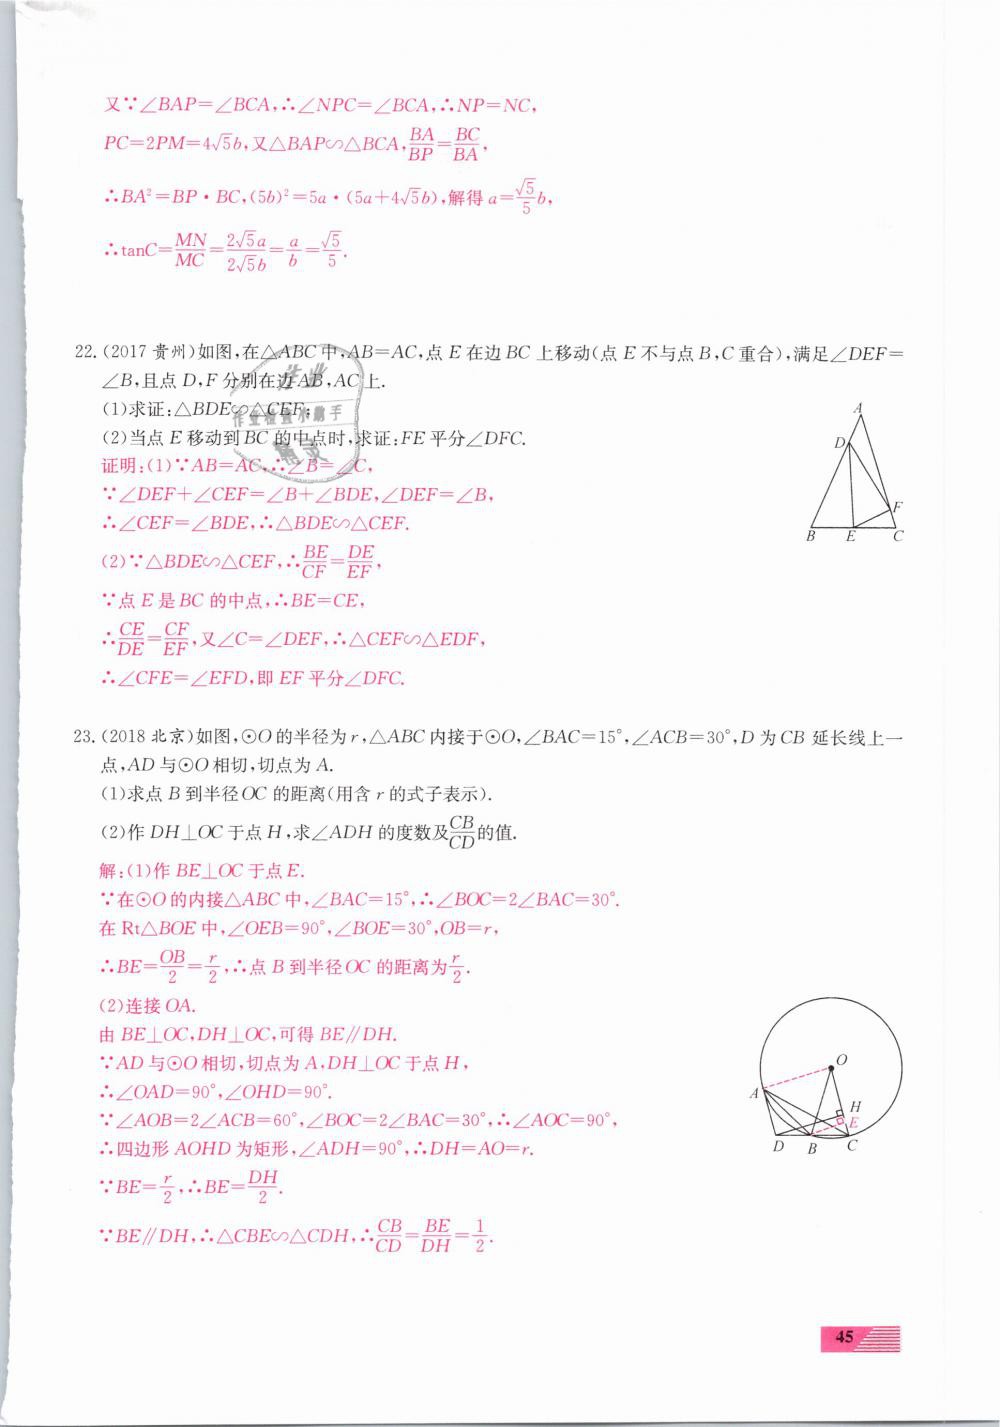 又∵∠BAP=∠BCA,∴∠NPC=∠BCA,∴NP=NC,
PC=2PM=4√5b,又△BAP∽△BCA,BA/BP=BC/BA,
∴BA²=BP·BC,(5b)²=5a·(5a+4√5b),解得a=√5/5b,
∴tanC=MN/MC=2√5a/2√5b=a/b=√5/5.
22.(2017 贵州)如图,在△ABC中,AB=AC,点 E 在边 BC 上移动(点 E 不与点 B,C 重合),满足∠DEF=
∠B,且点 D,F 分别在边 AB,AC 上.
(1)求证:△BDE∽△CEF;
(2)当点 E 移动到 BC 的中点时,求证:FE 平分∠DFC.
证明:(1)∵AB=AC,∴∠B=∠C,
∵∠DEF+∠CEF=∠B+∠BDE,∠DEF=∠B,
∴∠CEF=∠BDE,∴△BDE∽△CEF.
(2)∵△BDE∽△CEF,∴BE/CF=DE/EF,
∵点 E 是 BC 的中点,∴BE=CE,
∴CE/DE=CF/EF,又∠C=∠DEF,∴△CEF∽△EDF,
∴∠CFE=∠EFD,即 EF 平分∠DFC.
A
D
F
B E C
23.(2018 北京)如图,⊙O 的半径为 r,△ABC 内接于⊙O,∠BAC=15°,∠ACB=30°,D 为 CB 延长线上一
点,AD 与⊙O 相切,切点为 A.
(1)求点 B 到半径 OC 的距离(用含 r 的式子表示).
(2)作 DH⊥OC 于点 H,求∠ADH 的度数及CB/CD的值.
解:(1)作 BE⊥OC 于点 E.
∵在⊙O 的内接△ABC 中,∠BAC=15°,∴∠BOC=2∠BAC=30°.
在 Rt△BOE 中,∠OEB=90°,∠BOE=30°,OB=r,
∴BE=OB/2=r/2,∴点 B 到半径 OC 的距离为r/2.
(2)连接 OA.
由 BE⊥OC,DH⊥OC,可得 BE∥DH.
∵AD 与⊙O 相切,切点为 A,DH⊥OC 于点 H,
∴∠OAD=90°,∠OHD=90°.
∵∠AOB=2∠ACB=60°,∠BOC=2∠BAC=30°,∴∠AOC=90°,
∴四边形 AOHD 为矩形,∠ADH=90°,∴DH=AO=r.
∵BE=r/2,∴BE=DH/2.
∵BE∥DH,∴△CBE∽△CDH,∴CB/CD=BE/DH=1/2.
O
A
H
E
D B C
45
作业
作业检查小助手
精灵